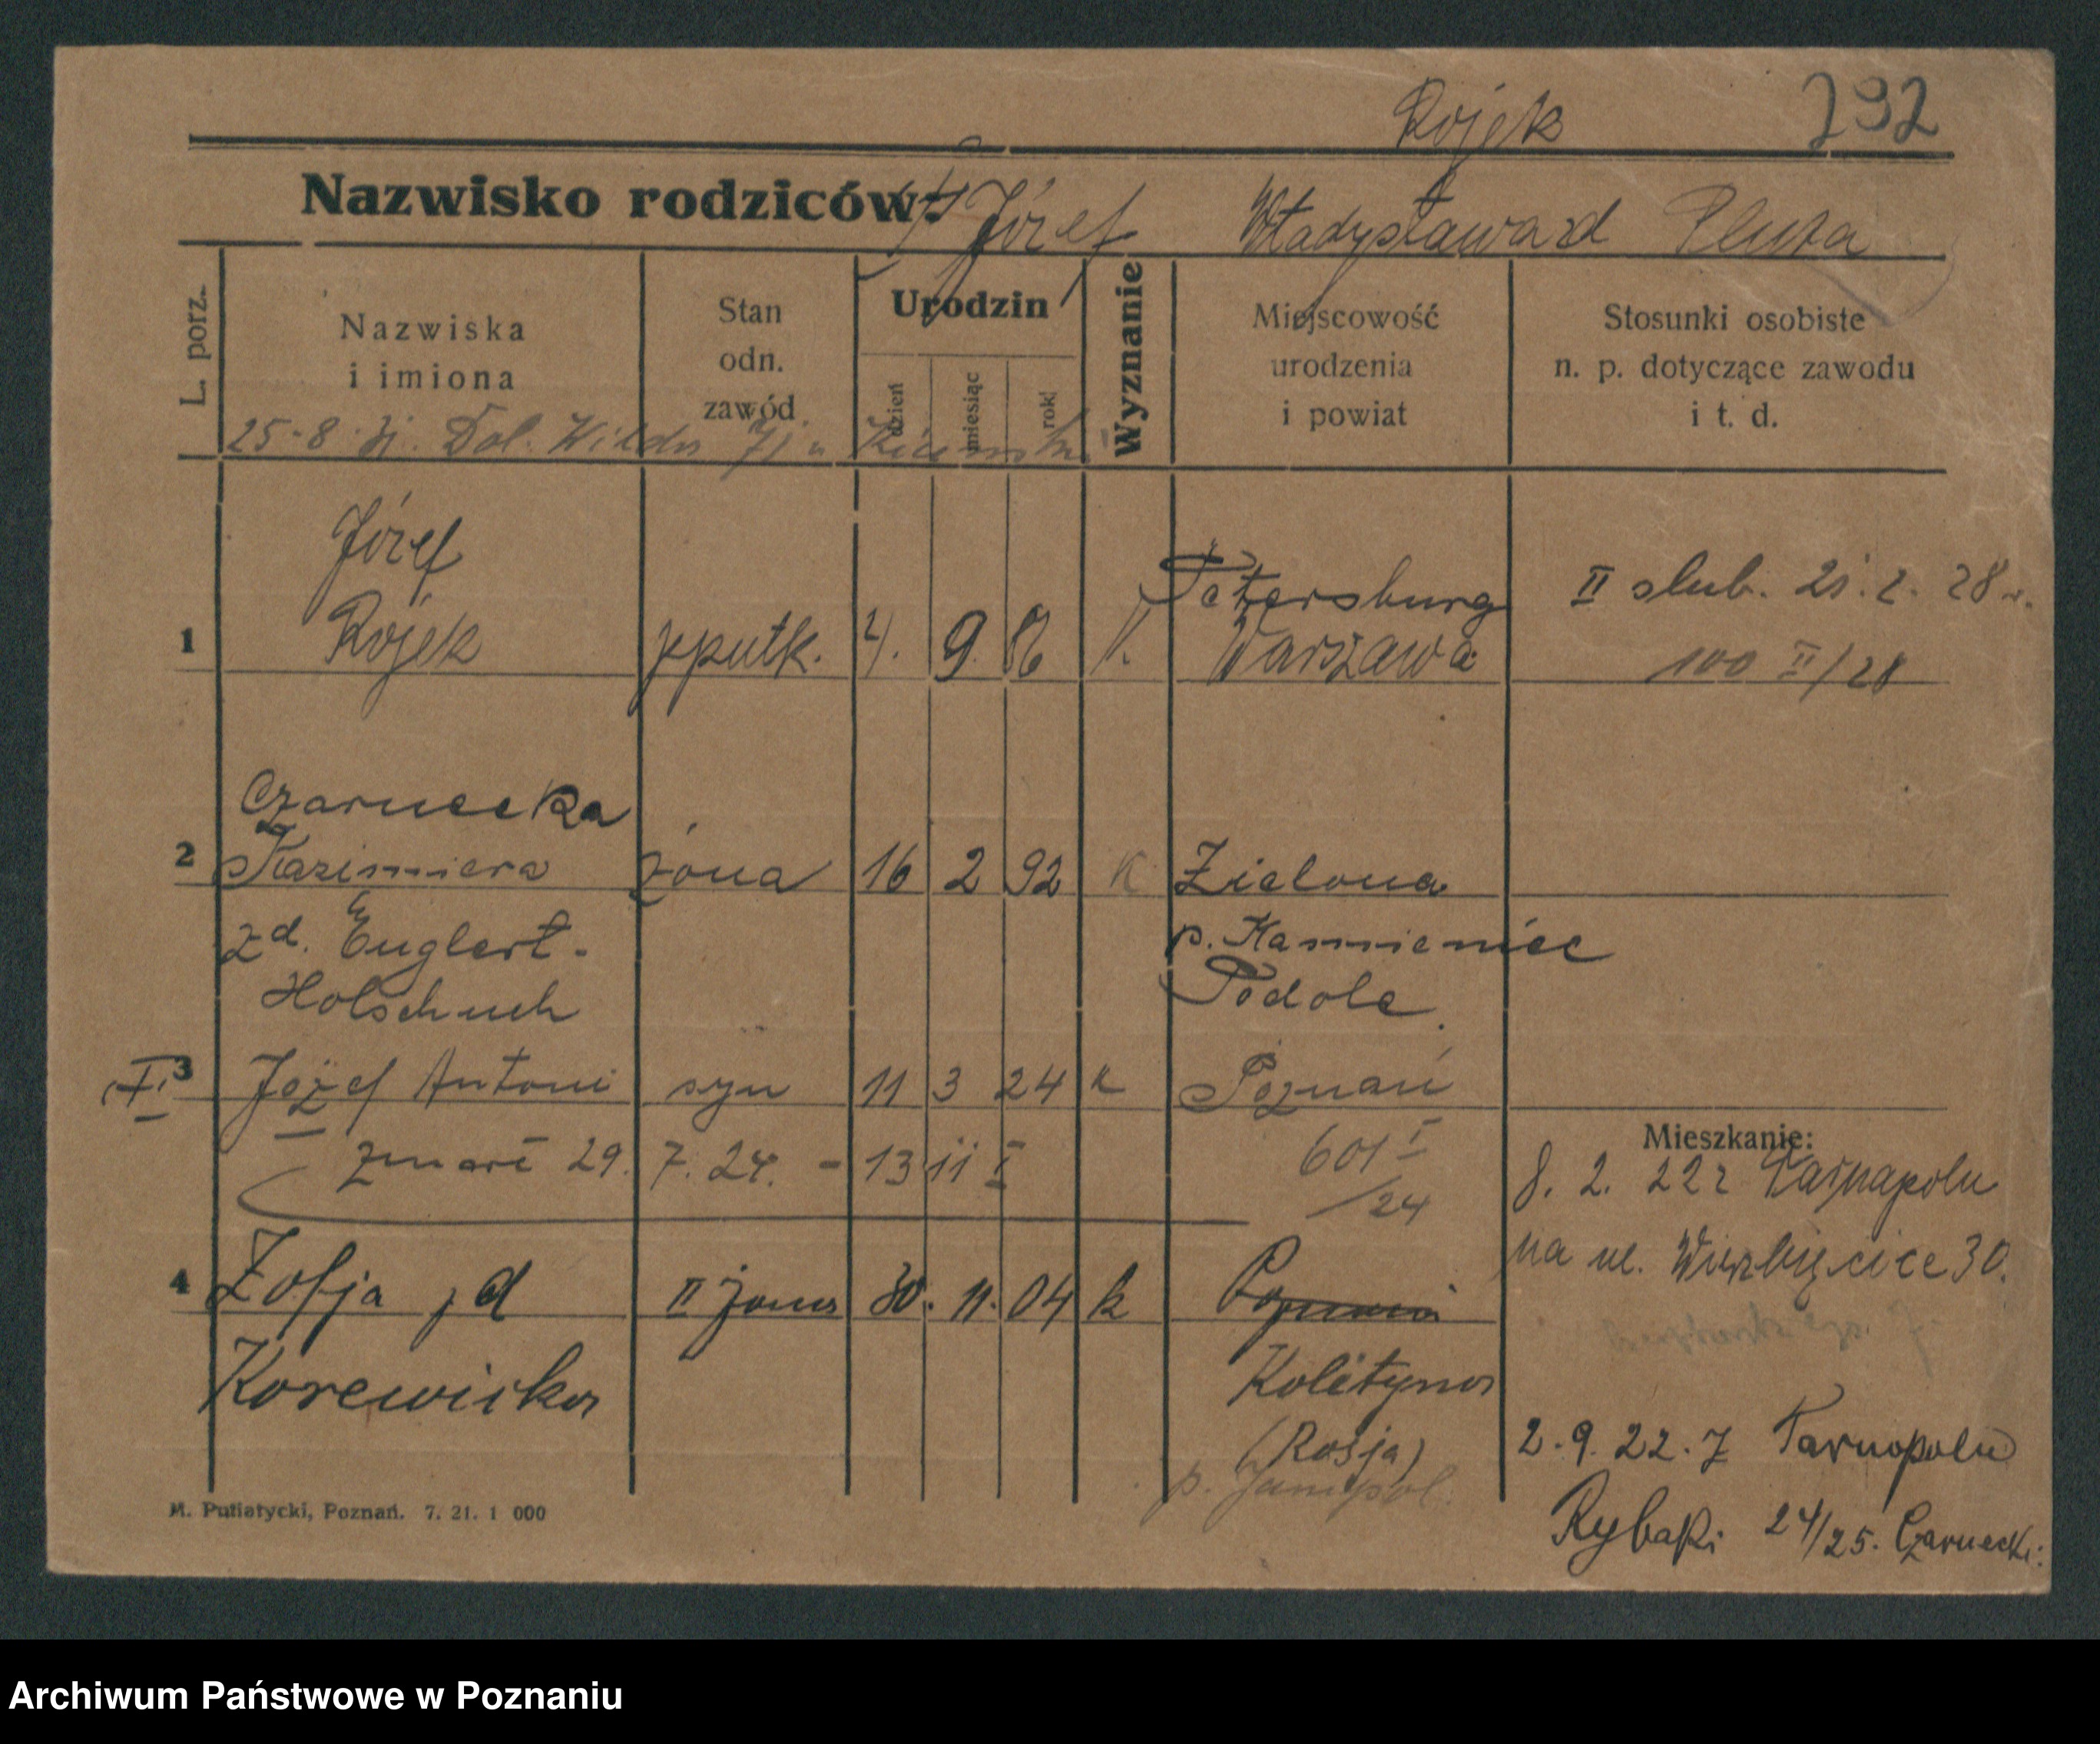 Rojek 292
Nazwisko rodziców: Józef Władysława d Pluta
L. porz.
Nazwiska
i imiona
Stan
odn.
zawód
Urodzin
dzień
miesiąc
rok
Wyznanie
Miejscowość
urodzenia
i powiat
Stosunki osobiste
n. p. dotyczące zawodu
i t. d.
25-8 Dol. Wilda
Józef Petersburg II slub. 21.2. 28 r.
1 Rojek ppułk. 4. 9. 86 K. Warszawa 100 II/28
Czarnecka
2 Kazimiera żona 16 2 92 K Zielona
zd. Englert- p. Kamieniec
Holschuch Podole.
I. 3 Józef Antoni syn 11 3 24 K Poznań
zmarł 29. 7. 24. - 13 11 I 601 I/24
Mieszkanie:
8. 2. 22 z Tarnapolu
na ul. Wierzbięcice 30.
4 Zofja zd II żona 30. 11. 04 k Poznań
Korewicka Kolityna
(Rosja)
p. Jampol.
2.9.22. z Tarnopolu
Rybaki 24/25. Czarnecki.
M. Putiatycki, Poznań. 7. 21. 1 000
Archiwum Państwowe w Poznaniu